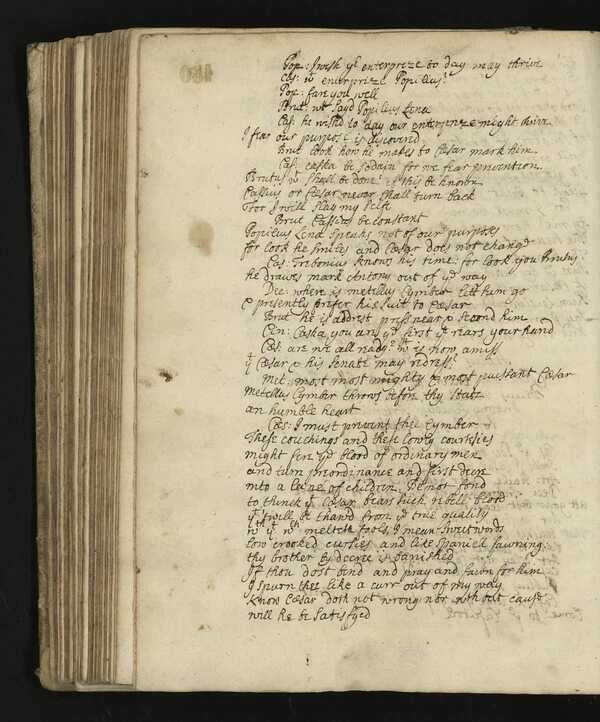 Pop: I wish yr enterprize to day may thrive
Cas: wt enterprize Popilius?
Pop: fare you well
Brut: wt sayd Popilius Lena
Cas: he wishd to day our enterprize might thrive
I fear our purpose is discoverd
Brut look how he makes to Cæsar mark him
Cas: caska be sodain for we fear prevention
Brutus wt shall be done? if this be known
Cassius or Cæsar never shall turn back
For I will slay my selfe
Brut Cassius be constant
Popilius Lena speaks not of our purposes
for look he smiles and Cæsar does not change
Cas: Trebonius knows his time: for look you Brutus
he drawes mark Antony out of ye way
Dec: where is metellus Cymber lett him go
& presently prefer his suit to Cæsar
Brut he is addrest press near & second him
Cin: Caska you are ye first yt rears your hand
Cæs: are we all ready? wt is now amiss
yt Cæsar & his senate may redress?
Met: most most mighty & most puissant Cæsar
Metellus Cymber throws before thy seate
an humble heart
Cæs: I must prevent thee Cymber
These couchings and these lowly courtsies
might fire ye blood of ordinary men
and turn preordinance and first decree
into a lane of children. Be not fond
to thinck yt Cæsar bears such rebell blood
yt will be thawd from ye true quality
wth yt wch melteth fools, I mean sweet words
low crooked cursies and like spaniell fawning
thy brother by decree is banished
If thou dost bend and pray and fawn for him
I spurn thee like a curr out of my way
Know Cæsar doth not wrong nor without cause
will he be satisfyed